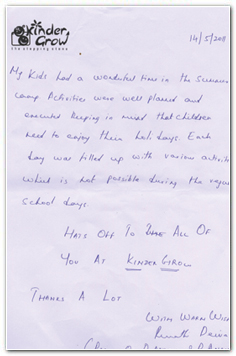 Kinder
Grow
the stepping stone
14/5/2011
My Kids had a wonderful time in the Summer
camp Activities were well planned and
executed keeping in mind that children
need to enjoy their holidays. Each
day was filled up with various activities
which is not possible during the regular
School days.
HATS OFF TO ALL OF
YOU AT KINDER GROW
THANKS A LOT
WITH WARM WISHES